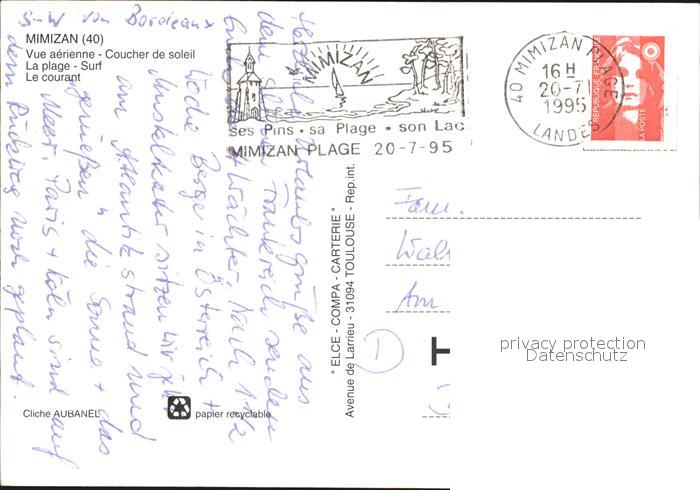 S-W von Bordeaux
MIMIZAN (40)
Vue aérienne - Coucher de soleil
La plage - Surf
Le courant
MIMIZAN
ses Pins • sa Plage • son Lac
MIMIZAN PLAGE 20-7-95
40 MIMIZAN PLAGE
16 H
20-7
1995
LANDES
REPUBLIQUE FRANÇAISE
LA POSTE
Urlaubsgrüße aus
dem Frankreich senden
Wächter. Nach 1 1/2
Woche Berge in Österreich +
sitzen wir jetzt
am Atlantikstrand und
genießen die Sonne + das
Meer. Paris + Köln sind auf
dem Rückweg noch geplant.
" ELCE - COMPA - CARTERIE "
Avenue de Larrieu - 31094 TOULOUSE - Rep.int.
Fam.
Am
T
privacy protection
Datenschutz
Cliché AUBANEL
papier recyclable